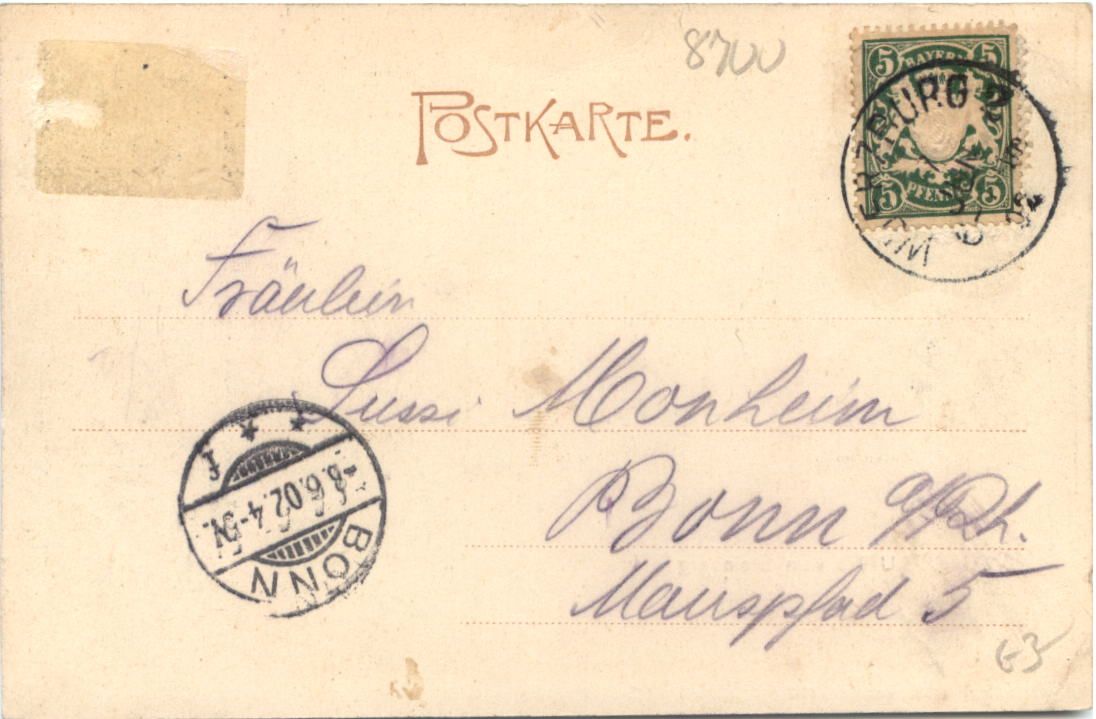 8700
POSTKARTE.
5 BAYERN 5
5 PFENNIG 5
WÜRZBURG 2
Fräulein
Sussi Monheim
Bonn a/Rh.
Mauspfad 5
BONN
-8.6.02.4-5N.
* * f
63